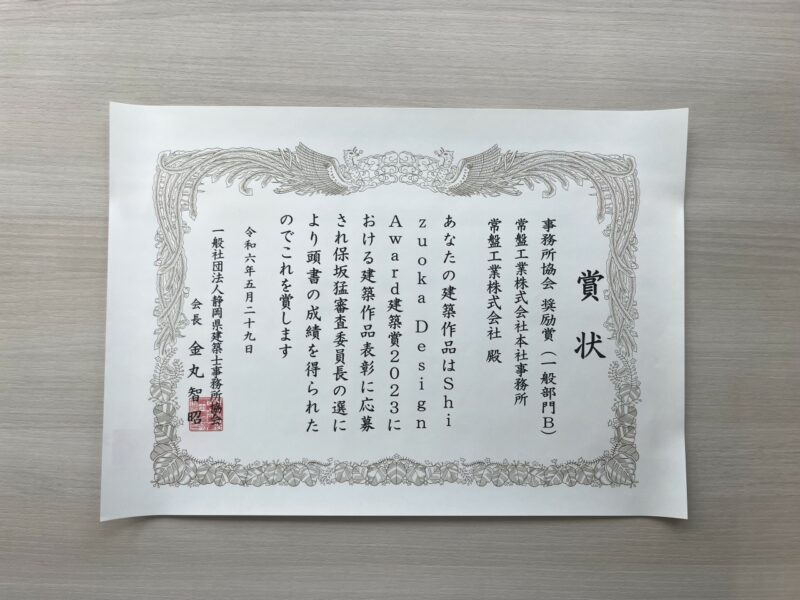 賞状
事務所協会 奨励賞(一般部門B)
常盤工業株式会社本社事務所
常盤工業株式会社 殿
あなたの建築作品はShi
zuoka Design
Award建築賞2023に
おける建築作品表彰に応募
され保坂猛審査委員長の選に
より頭書の成績を得られた
のでこれを賞します
令和六年五月二十九日
一般社団法人静岡県建築士事務所協会
会長 金丸智昭